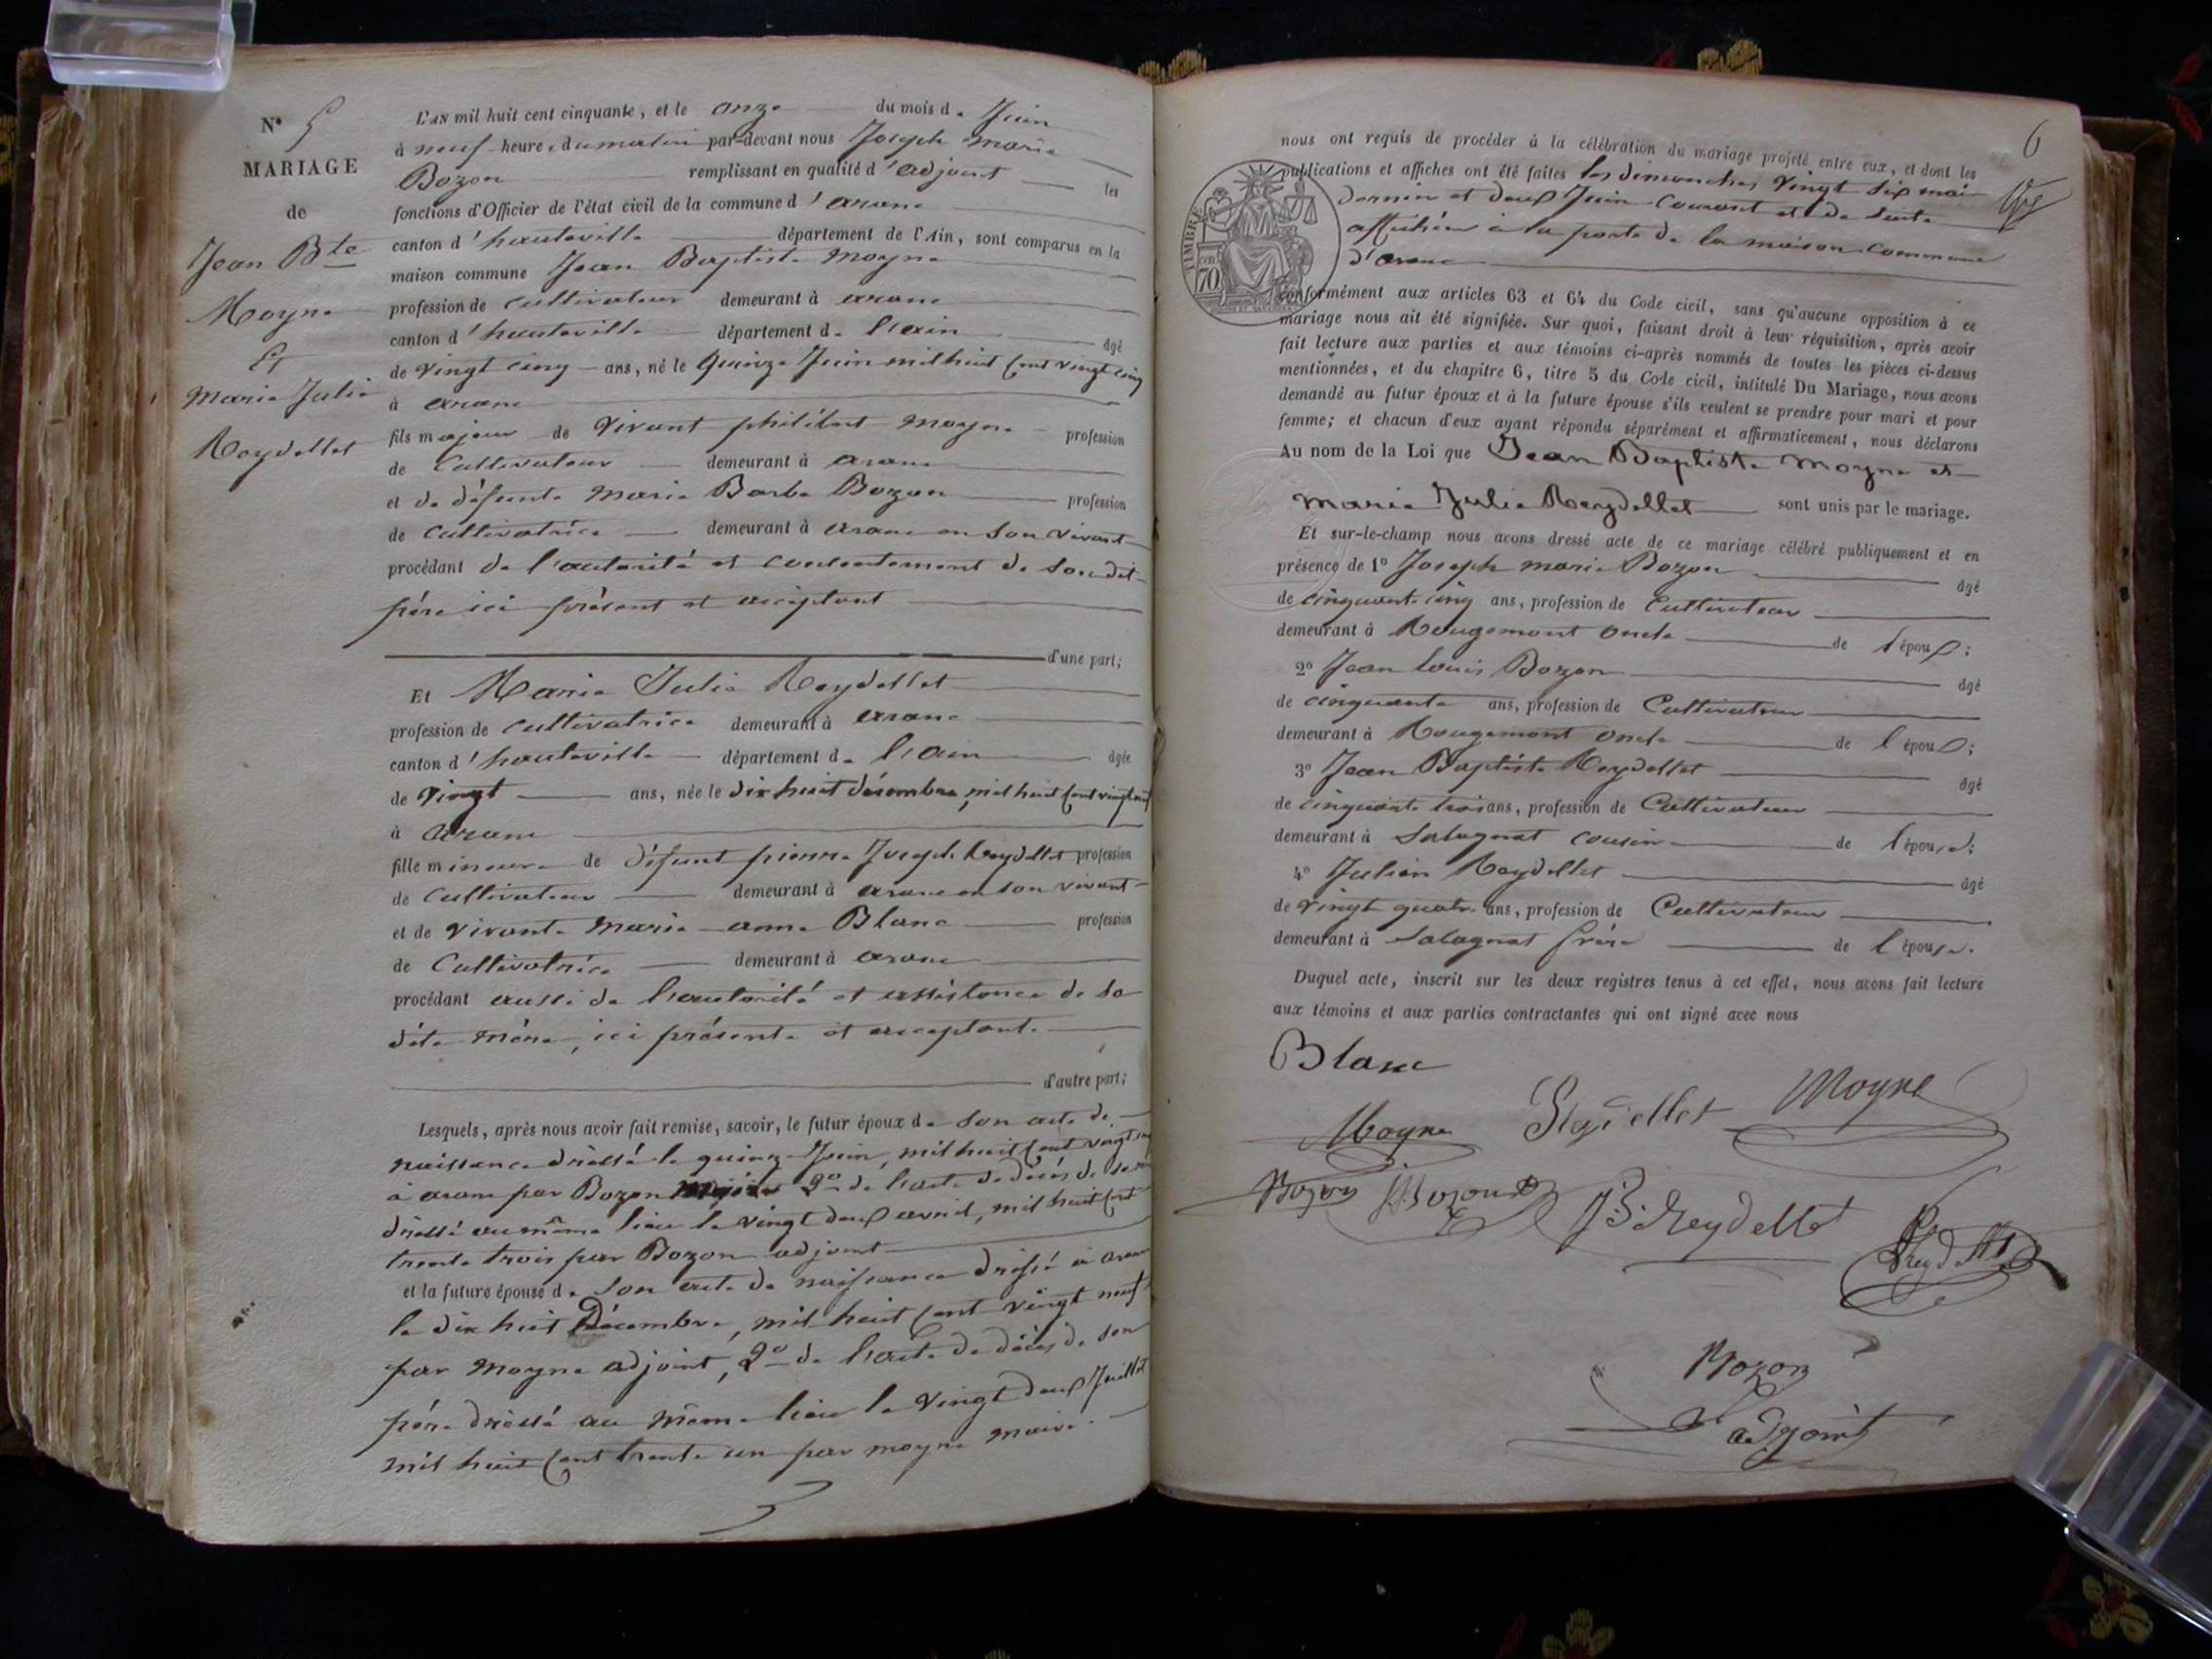 N° 5
MARIAGE
de
Jean Bte
Moyne
Et
Marie Julie
Reydellet
L'AN mil huit cent cinquante, et le onze du mois de Juin
à neuf heure, du matin par-devant nous Joseph marie
Bozon remplissant en qualité d'adjoint les
fonctions d'Officier de l'état civil de la commune d'aranc
canton d'hauteville département de l'Ain, sont comparus en la
maison commune Jean Baptiste moyne
profession de cultivateur demeurant à aranc
canton d'hauteville département de l'ain âgé
de vingt cinq ans, né le quinze Juin mil huit cent vingt cinq
à aranc
fils majeur de vivant philibert moyne profession
de cultivateur demeurant à aranc
et de défunte marie Barbe Bozon profession
de cultivatrice demeurant à aranc en son vivant
procédant de l'autorité et consentement de son dit
père ici présent et acceptant
d'une part;
Et Marie Julie Reydellet
profession de cultivatrice demeurant à aranc
canton d'hauteville département de l'ain âgée
de vingt ans, née le dix huit décembre, mil huit cent vingt neuf
à aranc
fille mineure de défunt pierre Joseph Reydellet profession
de cultivateur demeurant à aranc en son vivant
et de vivante marie anne Blanc profession
de cultivatrice demeurant à aranc
procédant aussi de l'autorité et assistance de sa
dite mère, ici présente et acceptante
d'autre part;
Lesquels, après nous avoir fait remise, savoir, le futur époux de son acte de
naissance dréssé le quinze Juin, mil huit cent vingt cinq
à aranc par Bozon 2° de l'acte de décès de sa mère
dréssé au même lieu le vingt deux avril, mil huit cent
trente trois par Bozon adjoint
et la future épouse de son acte de naissance dréssé à aranc
le dix huit Décembre, mil huit cent vingt neuf
par moyne adjoint, 2° de l'acte de décès de son
père dréssé au même lieu le vingt deux Juillet
mil huit cent trente un par moyne maire.
6
nous ont requis de procéder à la célébration du mariage projeté entre eux, et dont les
publications et affiches ont été faites les dimanches vingt six mai
dernier et deux Juin courant et de suite
affichées à la porte de la maison commune
d'aranc
TIMBRE
70
conformément aux articles 63 et 64 du Code civil, sans qu'aucune opposition à ce
mariage nous ait été signifiée. Sur quoi, faisant droit à leur réquisition, après avoir
fait lecture aux parties et aux témoins ci-après nommés de toutes les pièces ci-dessus
mentionnées, et du chapitre 6, titre 5 du Code civil, intitulé Du Mariage, nous avons
demandé au futur époux et à la future épouse s'ils veulent se prendre pour mari et pour
femme; et chacun d'eux ayant répondu séparément et affirmativement, nous déclarons
Au nom de la Loi que Jean Baptiste moyne et
marie Julie Reydellet sont unis par le mariage.
Et sur-le-champ nous avons dressé acte de ce mariage célébré publiquement et en
présence de 1° Joseph marie Bozon âgé
de cinquante cinq ans, profession de cultivateur
demeurant à Rougemont oncle de l'époux;
2° Jean louis Bozon âgé
de cinquante ans, profession de Cultivateur
demeurant à Rougemont oncle de l'époux;
3° Jean Baptiste Reydellet âgé
de cinquante trois ans, profession de Cultivateur
demeurant à Salagnat cousin de l'épouse;
4° Julien Reydellet âgé
de vingt quatre ans, profession de Cultivateur
demeurant à Salagnat frère de l'épouse.
Duquel acte, inscrit sur les deux registres tenus à cet effet, nous avons fait lecture
aux témoins et aux parties contractantes qui ont signé avec nous
Blanc
Moyne Reydellet Moyne
Bozon Bozon JB Reydellet
Reydellet
Bozon
adjoint